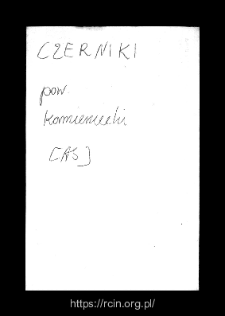 CZERNIKI
pow
kamieniecki
[AS]
https://rcin.org.pl/